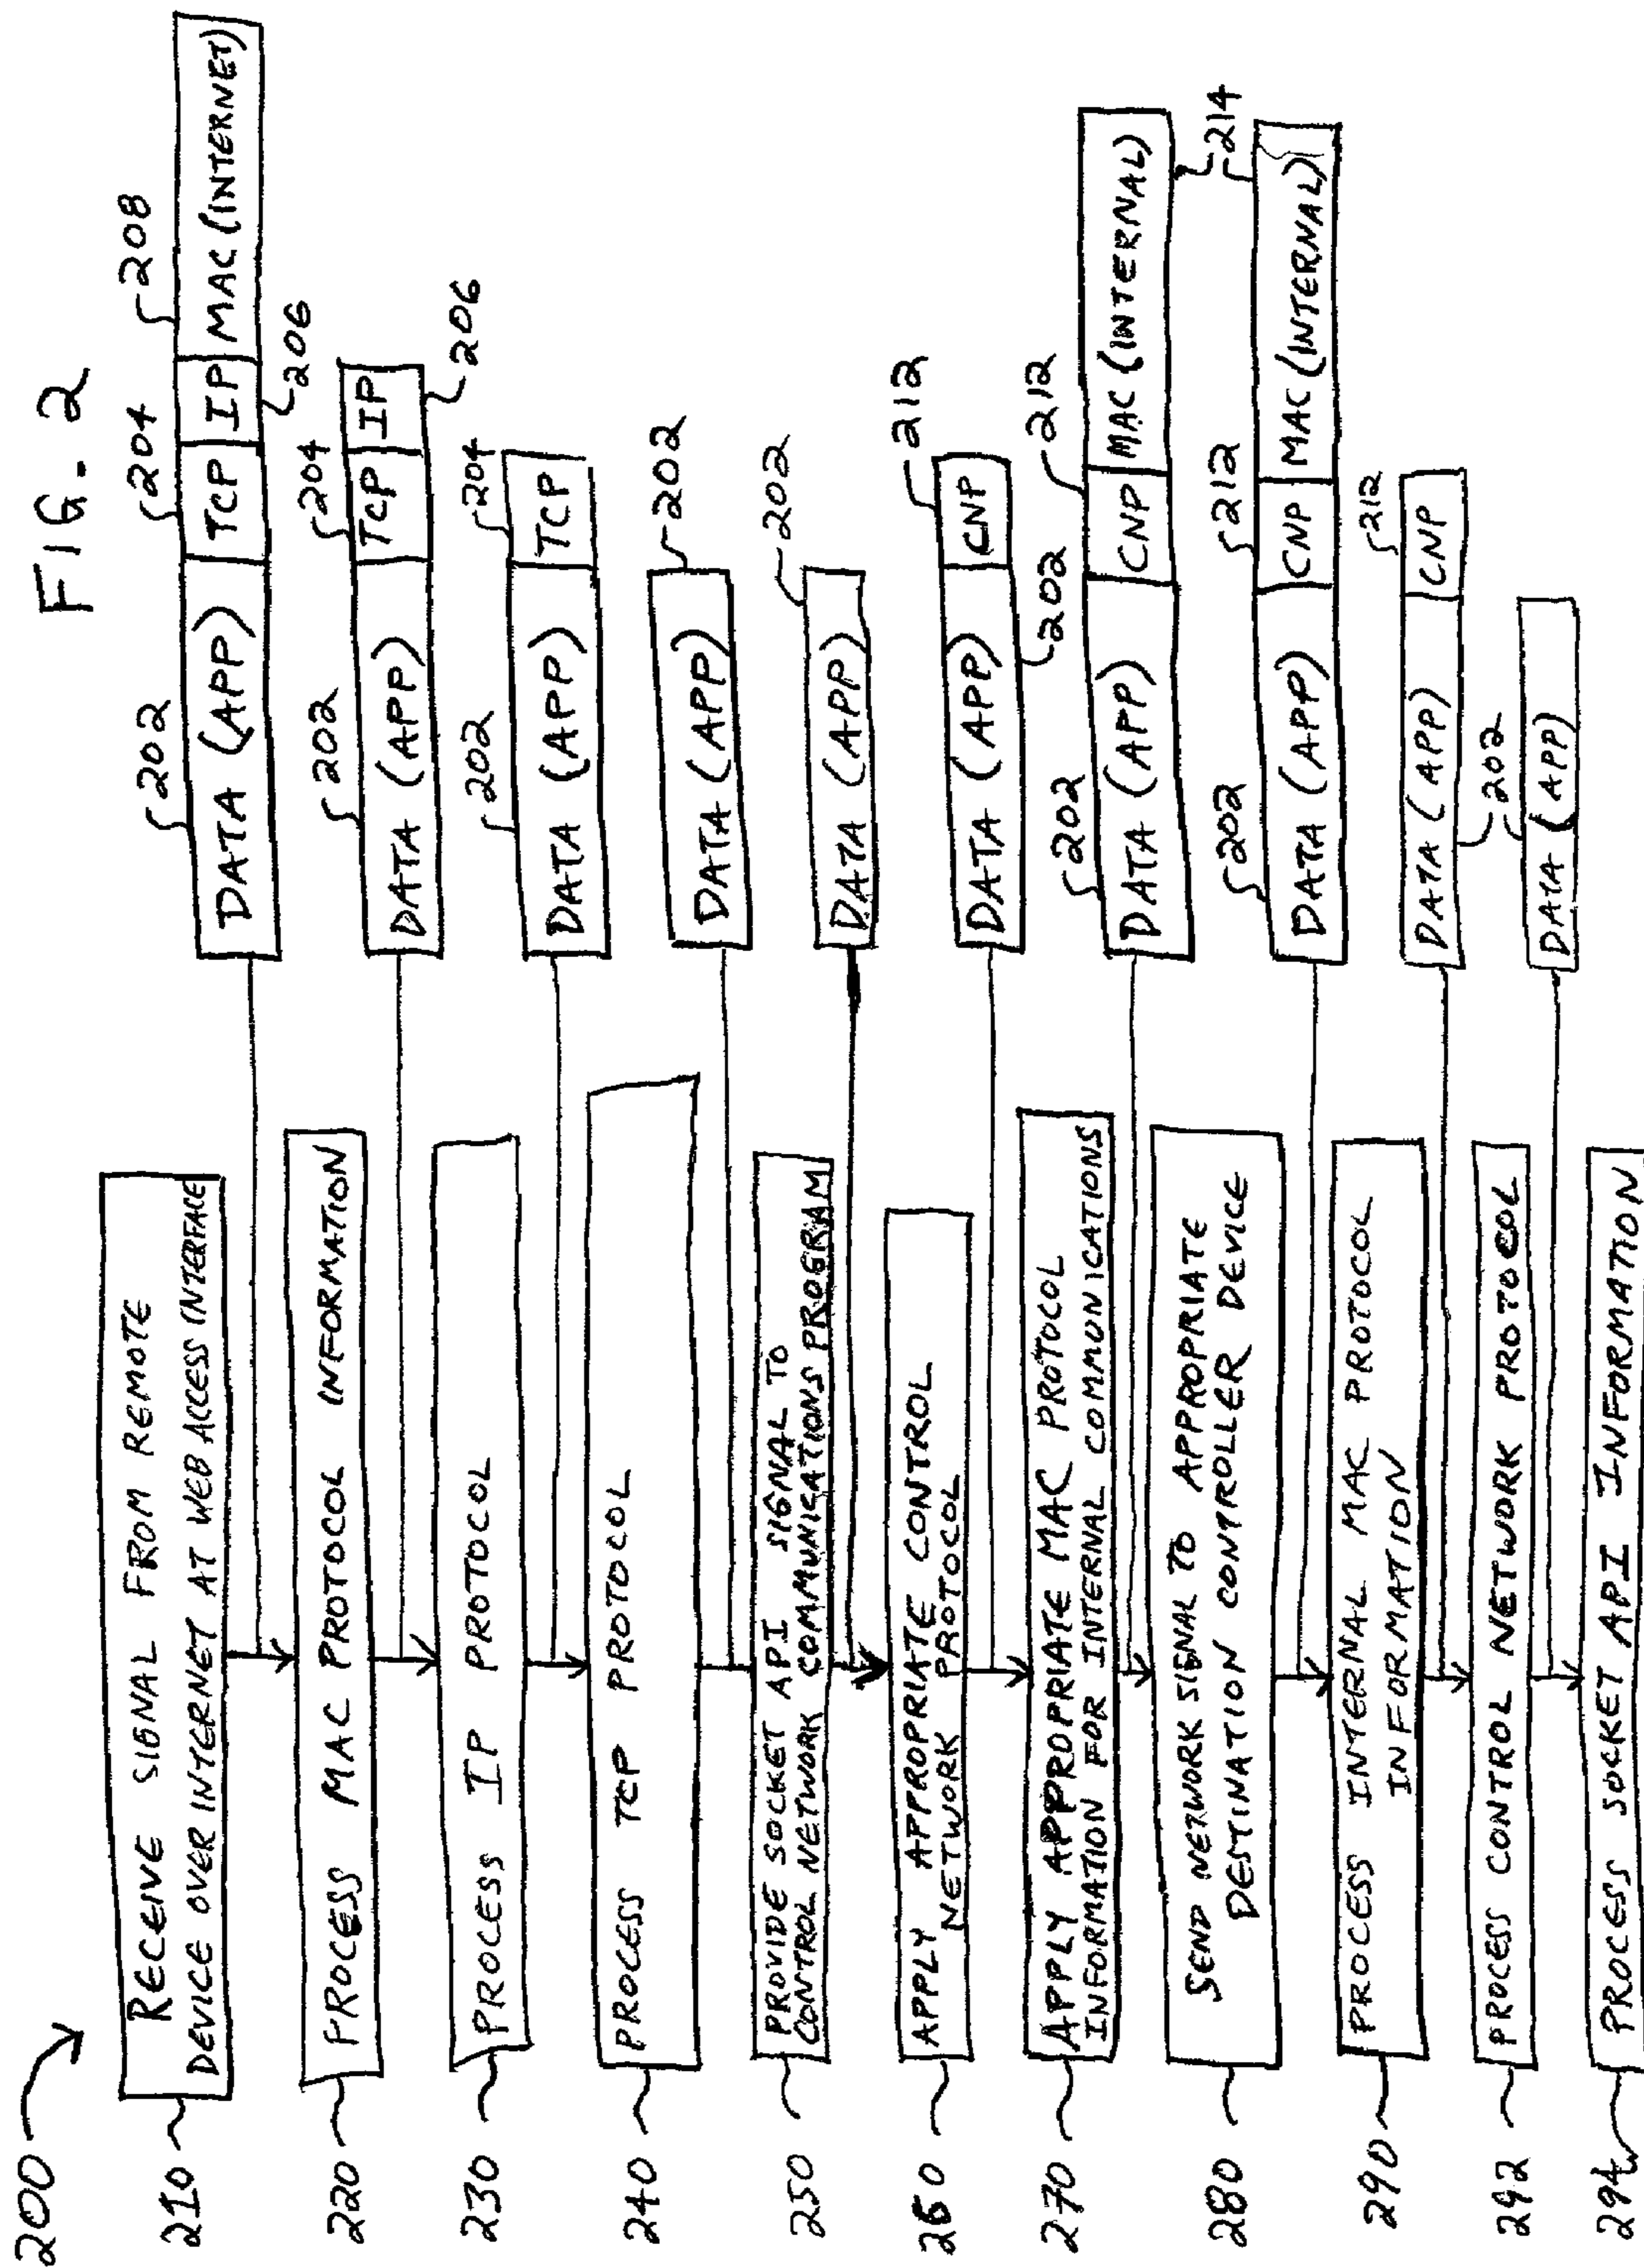 FIG. 2
200
210
RECEIVE SIGNAL FROM REMOTE
DEVICE OVER INTERNET AT WEB ACCESS INTERFACE
202
204
208
DATA (APP) TCP IP MAC (INTERNET)
206
220
PROCESS MAC PROTOCOL INFORMATION
202
204
DATA (APP) TCP IP
206
230
PROCESS IP PROTOCOL
202
204
DATA (APP) TCP
240
PROCESS TCP PROTOCOL
DATA (APP)
202
250
PROVIDE SOCKET API SIGNAL TO
CONTROL NETWORK COMMUNICATIONS PROGRAM
202
DATA (APP)
260
APPLY APPROPRIATE CONTROL
NETWORK PROTOCOL
212
DATA (APP) CNP
202
270
APPLY APPROPRIATE MAC PROTOCOL
INFORMATION FOR INTERNAL COMMUNICATIONS
202
212
DATA (APP) CNP MAC (INTERNAL)
214
280
SEND NETWORK SIGNAL TO APPROPRIATE
DESTINATION CONTROLLER DEVICE
202
212
DATA (APP) CNP MAC (INTERNAL)
290
PROCESS INTERNAL MAC PROTOCOL
INFORMATION
212
DATA (APP) CNP
202
292
PROCESS CONTROL NETWORK PROTOCOL
DATA (APP)
294
PROCESS SOCKET API INFORMATION